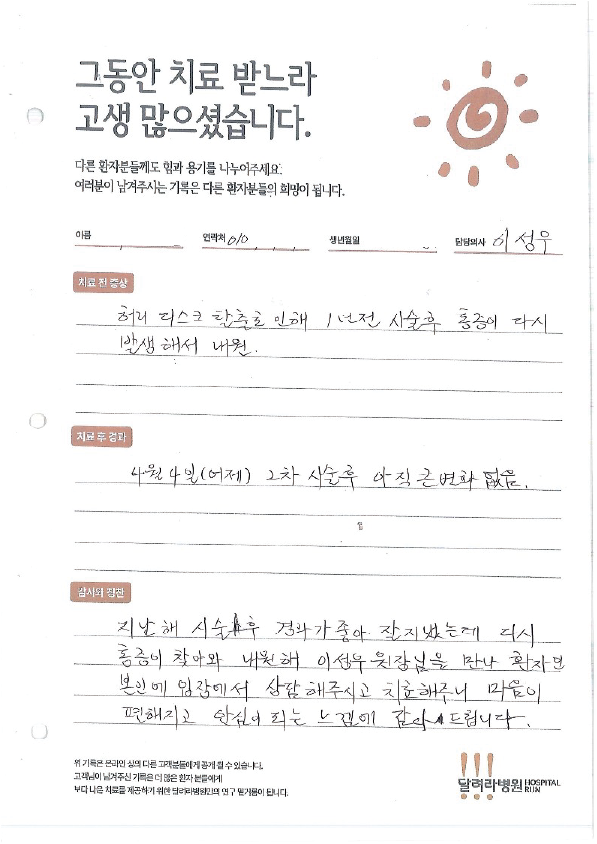 그동안 치료 받느라
고생 많으셨습니다.
다른 환자분들께도 힘과 용기를 나누어주세요.
여러분이 남겨주시는 기록은 다른 환자분들의 희망이 됩니다.
이름 연락처 010 생년월일 담당의사 이성우
치료 전 증상
허리 디스크 탈출로 인해 1년전 시술후 통증이 다시
발생해서 내원.
치료 후 경과
4월 4일(어제) 2차 시술후 아직 큰 변화 없음.
감사와 칭찬
지난해 시술후 경과가 좋아 잘지냈는데 다시
통증이 찾아와 내원해 이성우 원장님을 만나 환자
본인에 입장에서 상담해주시고 치료해주니 마음이
편해지고 안심이 되는 느낌에 감사 드립니다.
위 기록은 온라인 상의 다른 고객분들에게 공개 될 수 있습니다.
고객님이 남겨주신 기록은 더 많은 환자 분들에게
보다 나은 치료를 제공하기 위한 달려라병원만의 연구 밑거름이 됩니다.
달려라병원 HOSPITAL RUN